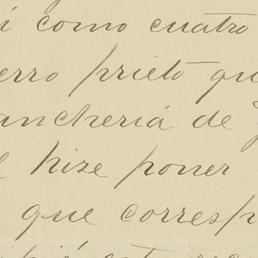 í como cuatro
erro prieto qu
ancheria de
hize poner
que corresp